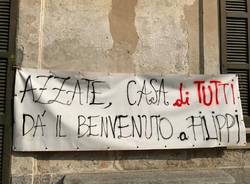 AZZATE, CASA di TUTTI
DÀ IL BENVENUTO a FILIPPI